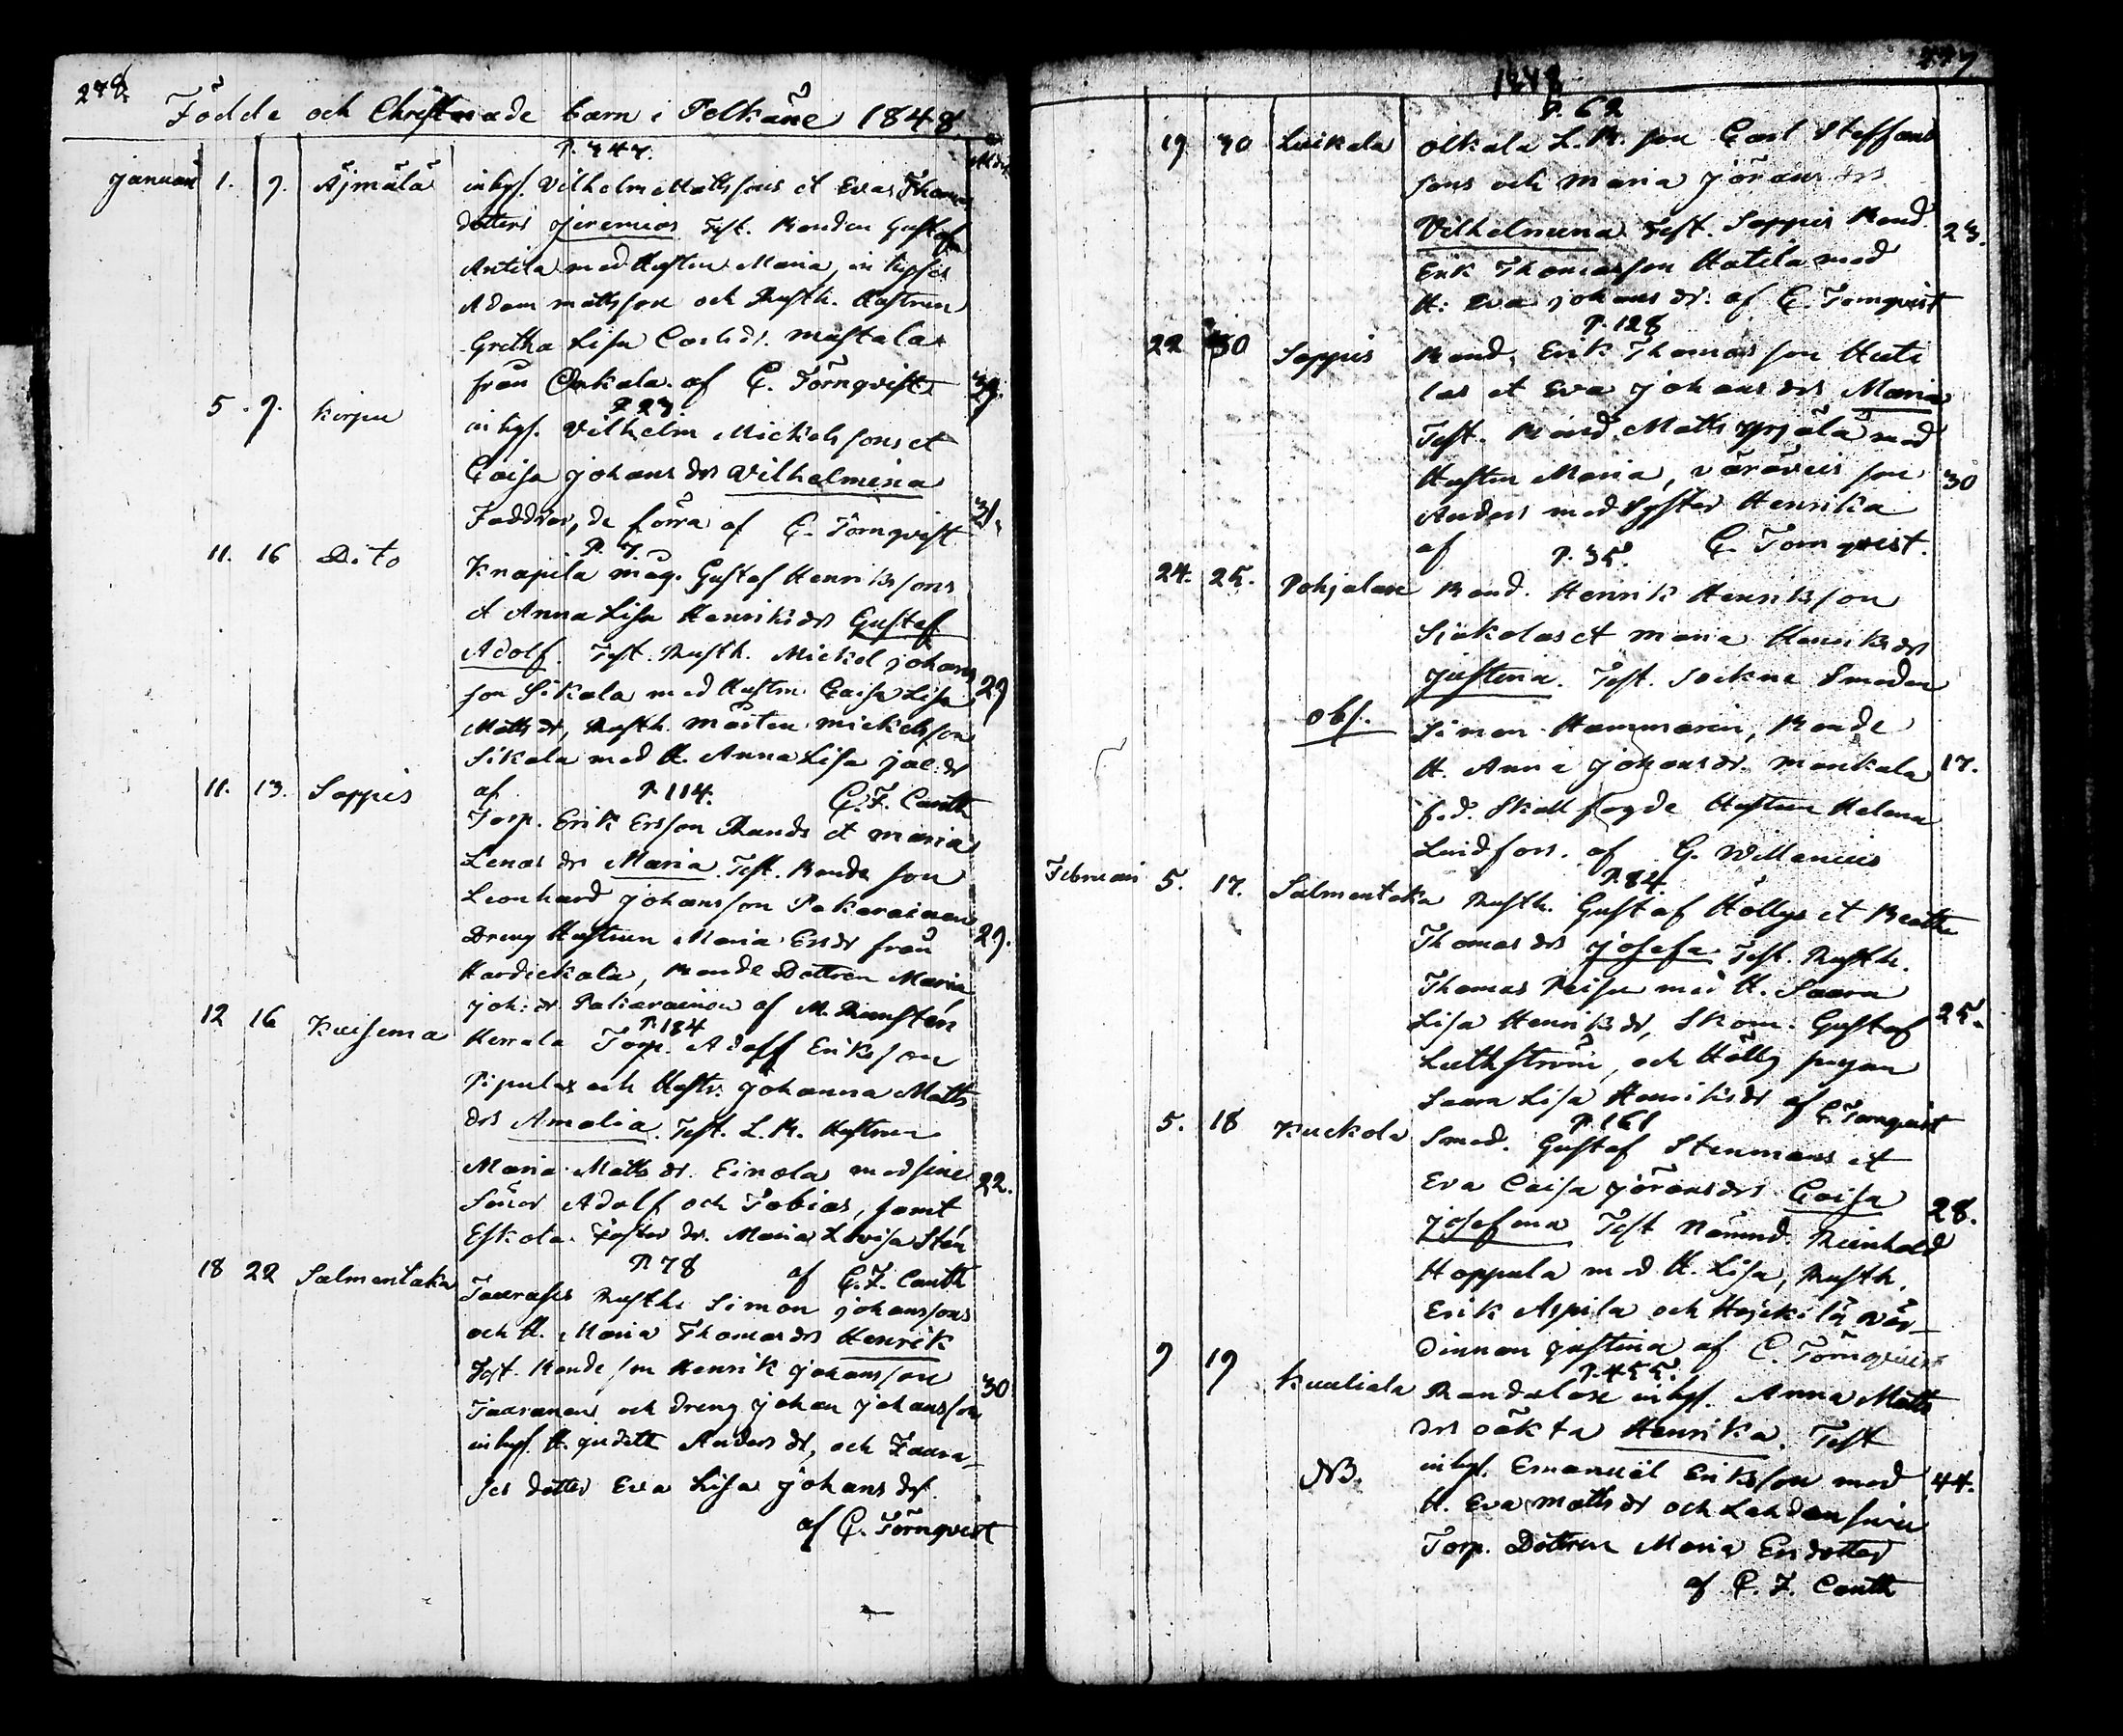 278.
Födde och Christnade barn i Pelkäne 1848
P. 347.
Januari 1. 9. Äjmälä inhys. Vilhelm Mattssons et Evas Thomas
dotters Jeremias Test. Bonden Gustaf
Antila med Hustru Maria, inhyses
Adam Mattsson och Rusth. Hustrun
Gretha Lisa Carlsdr. Mastala
från Onkala af C. Törnqvist 39.
P. 23
5. 9. Kirpu inhys. Vilhelm Mickelssons et
Caisa Johans drs Vilhelmina
Faddrar, de förra af C. Törnqvist 31.
P. 7.
11. 16 Dito Knapila måg. Gustaf Henrikssons
et Anna Lisa Henriksdrs Gustaf
Adolf. Test. Rusth. Mickel Johans
son Sikala med Hustru Caisa Lisa 29
Matts dr, Rusth. Mårten Mickelsson
Sikala med H. Anna Lisa Jac: dr
af C. F. Canth
P. 114.
11. 13. Sappis Torp. Erik Ersson Rands et Maria
Lenas drs Maria. Test. Bonde son
Leonhard Johansson Pakarainen
Dreng Hustrun Maria Ersdr från 29.
Hardickala, Bonde Dottren Maria
Joh: dr Pakarainen af M. Runstén
P. 184
12 16 Kuisema Herrala Torp. Adolf Eriksson
Pipulas och Hustr. Johanna Matts
drs Amalia. Test. L. B. Hustrun
Maria Matts dr. Einola med sine 22.
Söner Adolf och Tobias, samt
Eskola Foster dr. Maria Lovisa Stén
P. 78 af C. F. Canth
18 22 Salmentaka Taurases Rusth. Simon Johanssons
och H. Maria Thomas drs Henrik
Test. Bonde son Henrik Johansson 30
Taaranen och dreng Johan Johansson
inhys. H. Judith Anders dr, och Taura-
ses dotter Eva Lisa Johans dr.
af C. Törnqvist
1848
P. 62
19 30 Luikala Olkala L. B. son Carl Steffans
sons och Maria Jörans drs
Vilhelmina Test. Sappis Bond. 23.
Erik Thomasson Hatila med
H: Eva Johans dr. af C. Törnqvist
P. 128
22 30 Sappis Bond. Erik Thomasson Hati
las et Eva Johans drs Maria
Test. Bond. Matts Yrjälä med
Hustru Maria, son 30
Anders med Syster Henrika
af C. Törnqvist.
P. 35.
24. 25. Pohjalax Bond. Henrik Henriksson
Sjökolas et Maria Henriksdrs
Justina. Test. Sockne Smeden
obs. Simon Hammarin, Bonde
H. Anna Johans dr. Mankala 17.
f.d. Skall fogde Hustrun Helena
Lindfors. af G. Willenius
P. 84.
Februari 5. 17. Salmentaka Rusth. Gustaf Höllys et Beatha
Thomas drs Josefa. Test. Rusth.
Thomas Peisu med H. Saara
Lisa Henriks dr, Skom. Gustaf 25.
Luthström, och Hölly pigan
Saara Lisa Henriksdr af C. Törnqvist
P. 161
5. 18 Kuckola Smed. Gustaf Stenmans et
Eva Caisa Jöransdrs Caisa
Josefina Test Nämnd. Reinhold 28.
Hoppula med H. Lisa, Rusth.
Erik Aspila och Hajckilä vär-
dinnan Justina af C. Törnqvist
P. 455.
9 19 Kuuliala Bandalose inhys. Anna Matts
drs oäkta Henrika. Test
NB. inhys. Emanuel Eriksson med 44.
H. Eva Matts dr och Lahdensivu
Torp. Dottren Maria Ersdotter
af C. F. Canth